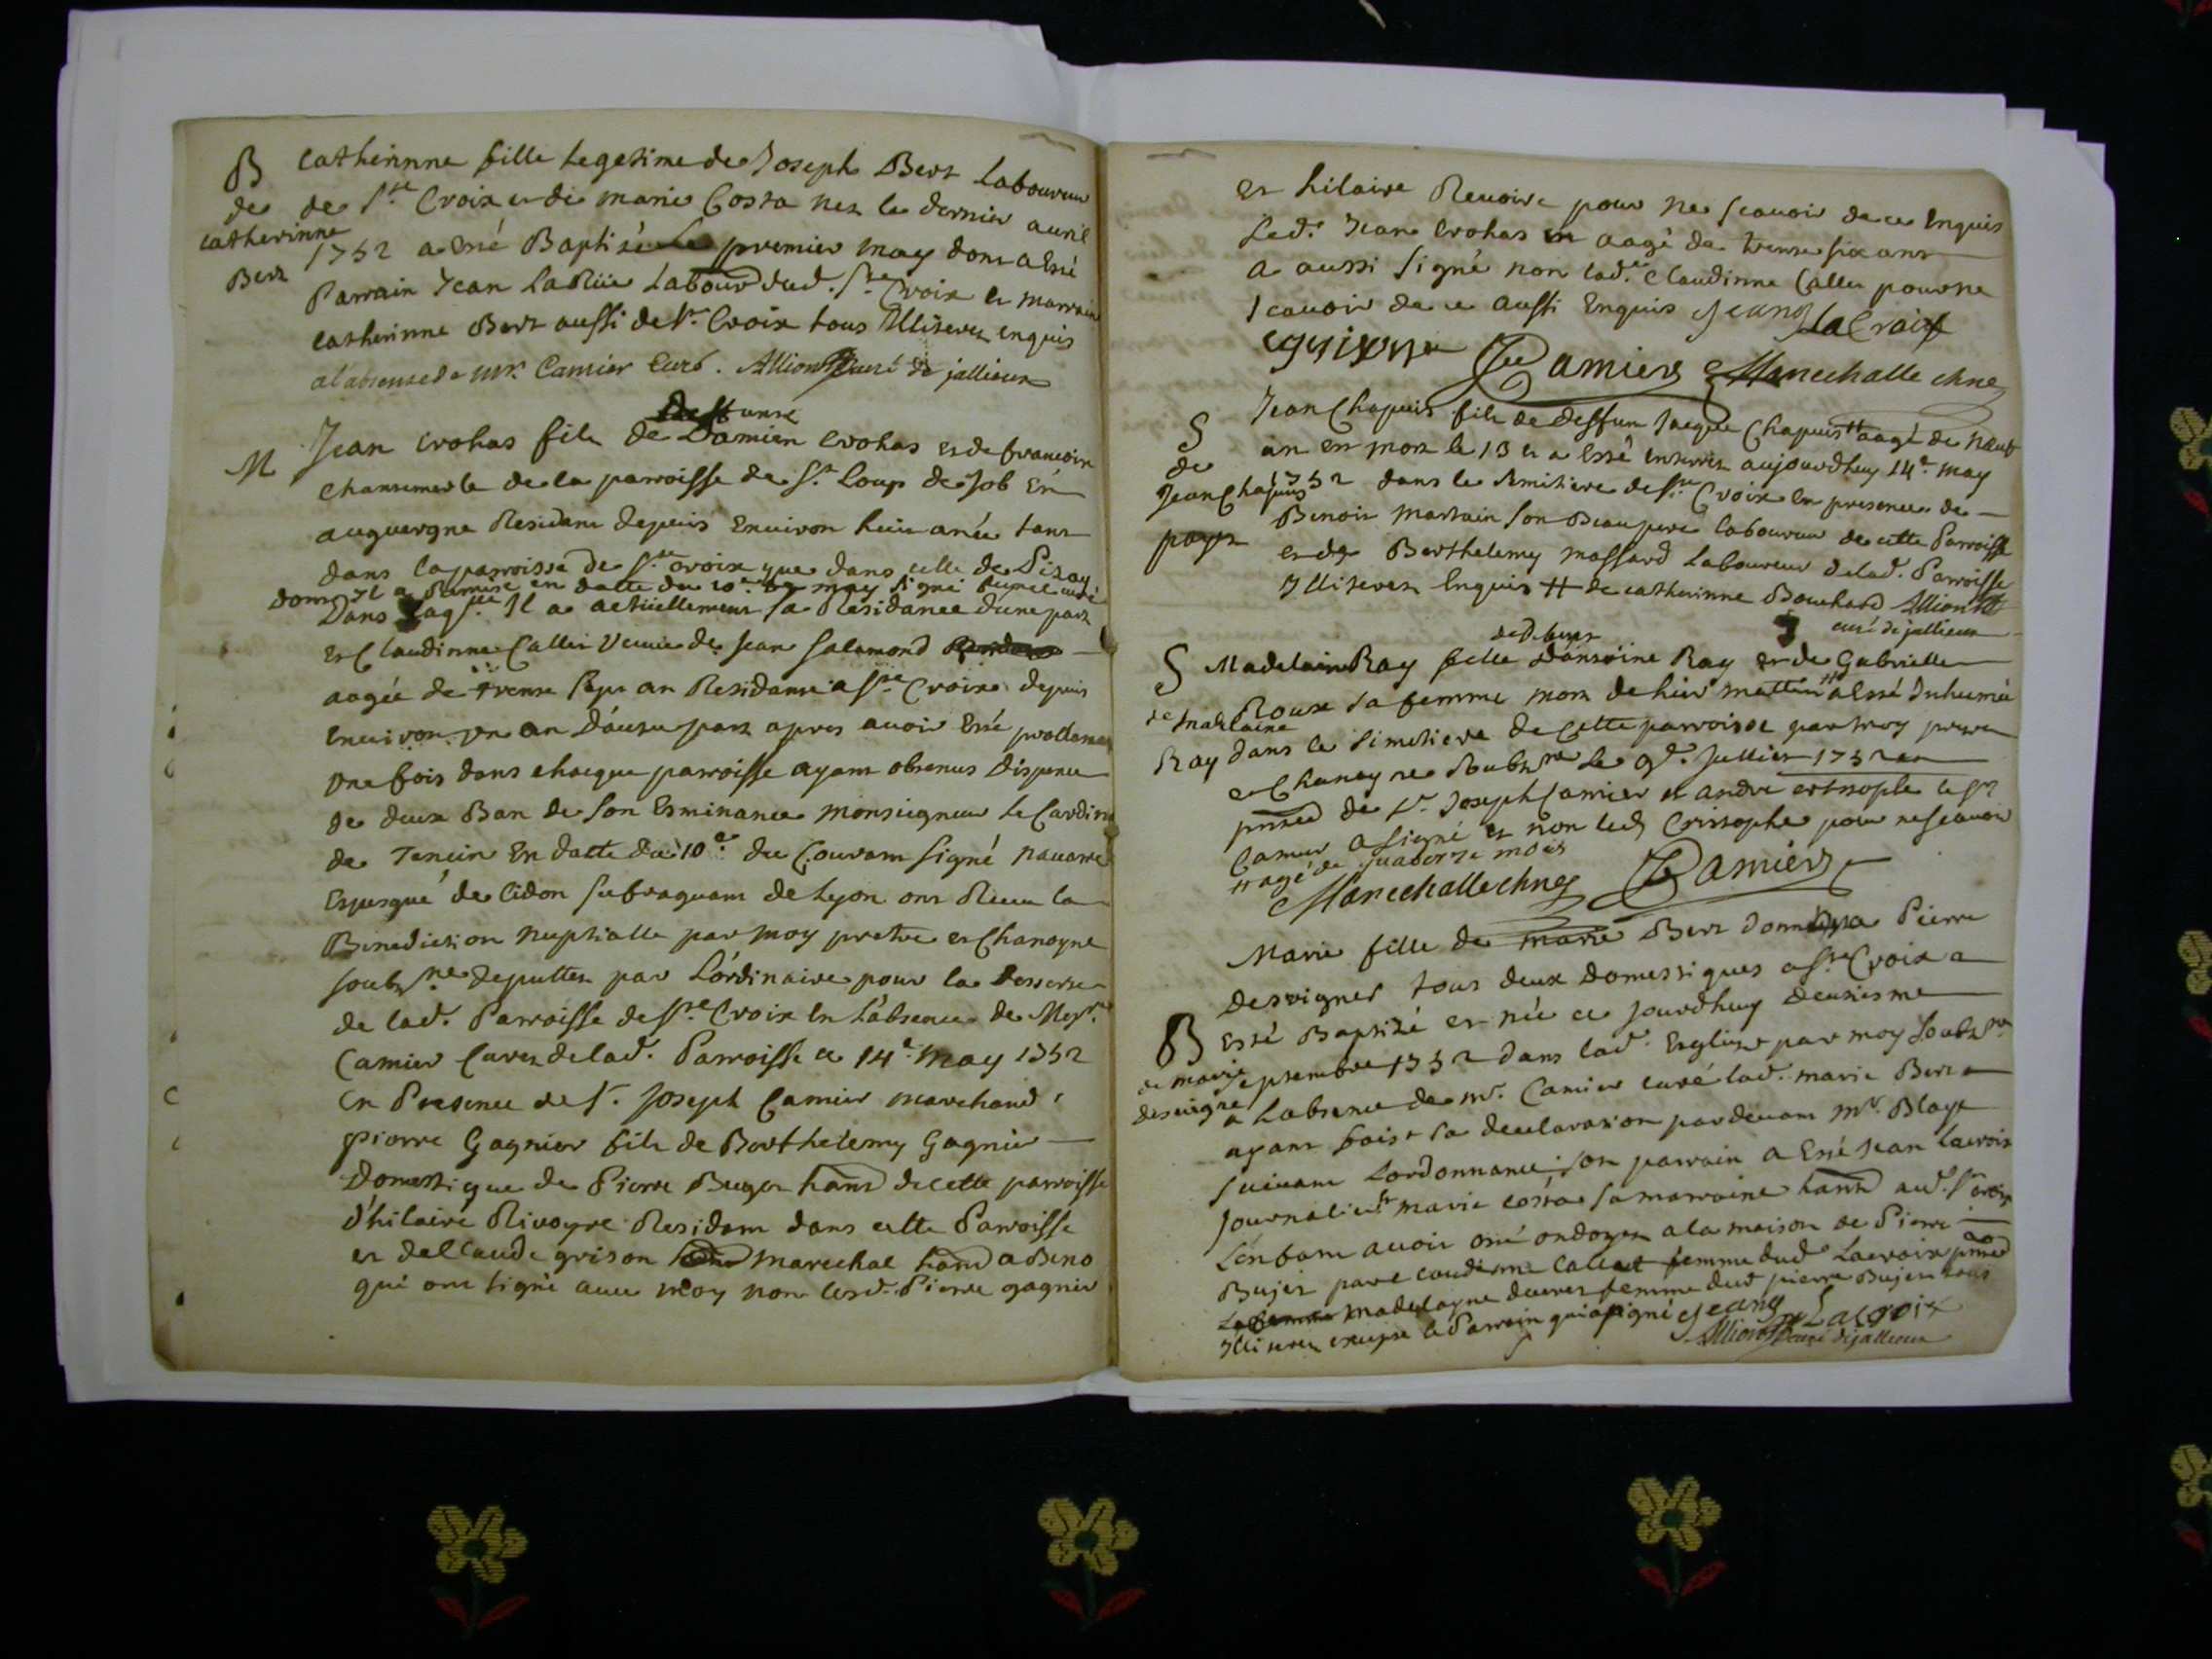 B Catherinne fille Legetime de Joseph Bert Laboureur
de de Ste Croix et de marie Costa nez le dernier auril
Catherinne
Bert 1752 a esté Baptisée Le premier may dont a esté
Parrain Jean LaRüe Labour dud. Ste Croix et marraine
Catherinne Bert aussi de Ste Croix tous Illiterez enquis
a labsence de mr. Camier Curé. Allion Curé de jallieux
Deffunt
M Jean Crohas fils de Damien Crohas et de francoise
Chantemerle de la parroisse de St. Loup de Job En
auguergne Residant depuis Enuiron huit anée tant
dans la parroisse de Ste croix que dans celle de Pizay
dont Il a Remise en datte du 10e de may signé curé
Dans Laqlle Il a actüellement sa Residance dune part
et Claudinne Caller Veuue de Jean Salamond
aagée de trente sept an Residante a Ste Croix depuis
Enuiron un an D'autre part apres auoir Esté proclamez
une fois dans chaque parroisse ayant obtenus dispence
de deux Ban de Son Esminance monseigneur Le Cardinal
de Tencin En datte du 10e du Courant signé nauarre
Euesque de Cidon sufragant de Lyon ont Receu la
Benediction nuptialle par moy pretre et Chanoyne
soubsne deputtez par L'ordinaire pour la desserte
de lad. Parroisse de Ste Croix En L'absence de Mesre
Camier Curez de lad. Parroisse ce 14e may 1752
En Presence de Sr. Joseph Camier marchand,
pierre Gagnier fils de Barthelemy Gagnier
Domestique de Pierre Buger hant de cette parroisse
d'hilaire Riuoyre Residant dans cette Parroisse
et de Claude grison marechal hant a Beno
qui ont signé auec moy non lesd. Pierre gagnier
et hilaire Reuoire pour ne scauoir de ce Enquis
Led. Jean Crohas aagé de trente six ans
a aussi signé non lad. Claudinne Caller pour ne
scauoir de ce aussi Enquis Jean LaCroix
grison Camier Marechalle chne
S Jean Chapuis fils de deffun Jacque Chapuis # aagé de neuf
de an est mort le 13 et a Esté enterrez aujourdhuy 14e may
Jean Chapuis 1752 dans le simitiere de Ste Croix En presence de
payez Benoit martain son Beaupere laboureur de cette Parroisse
et de Barthelemy massard Laboureur de lad. Parroisse
Illiterez Enquis # de catherinne Bouchard Allion
curé de jallieux
de deffunt
S Madelaine Ray fille d'antoine Ray et de Gabrielle
de madelaine Roux sa femme mort de hier mattin # a Esté Inhumée
Ray dans le simitiere de Cette parroisse par moy pretre
et Chanoyne soubsne Le 9e. Jullier 1752 en
pnce de Sr. Joseph Camier et andré cristophle le Sr
Camier a signé et non led Cristophe pour ne scauoir
# agé de quatorze mois
Marechalle chne Camier
Marie fille de marie Bert donné a Pierre
desuignes tous deux domestiques a Ste Croix a
B Esté Baptisé et née ce jourdhuy deuxiesme
de marie septembre 1752 dans lad. Esglise par moy soubsné
desuigne a Labsence de mr. Camier curé lad. marie Bert
ayant fait sa declaration pardeuant Mr. Blaye
suiuant Lordonnance, son parrain a Esté Jean Lacroix
Journalier marie costa sa marraine hant aud. Ste croix
L'enfant auoir esté ondoyez a la maison de Pierre
Bujer par claudinne Callet femme dud Lacroix pnce
madelayne femme dud pierre Bujer tous
Illiterez excepté le Parrain qui a signé Jean Lacroix
Allion Curé de jallieux